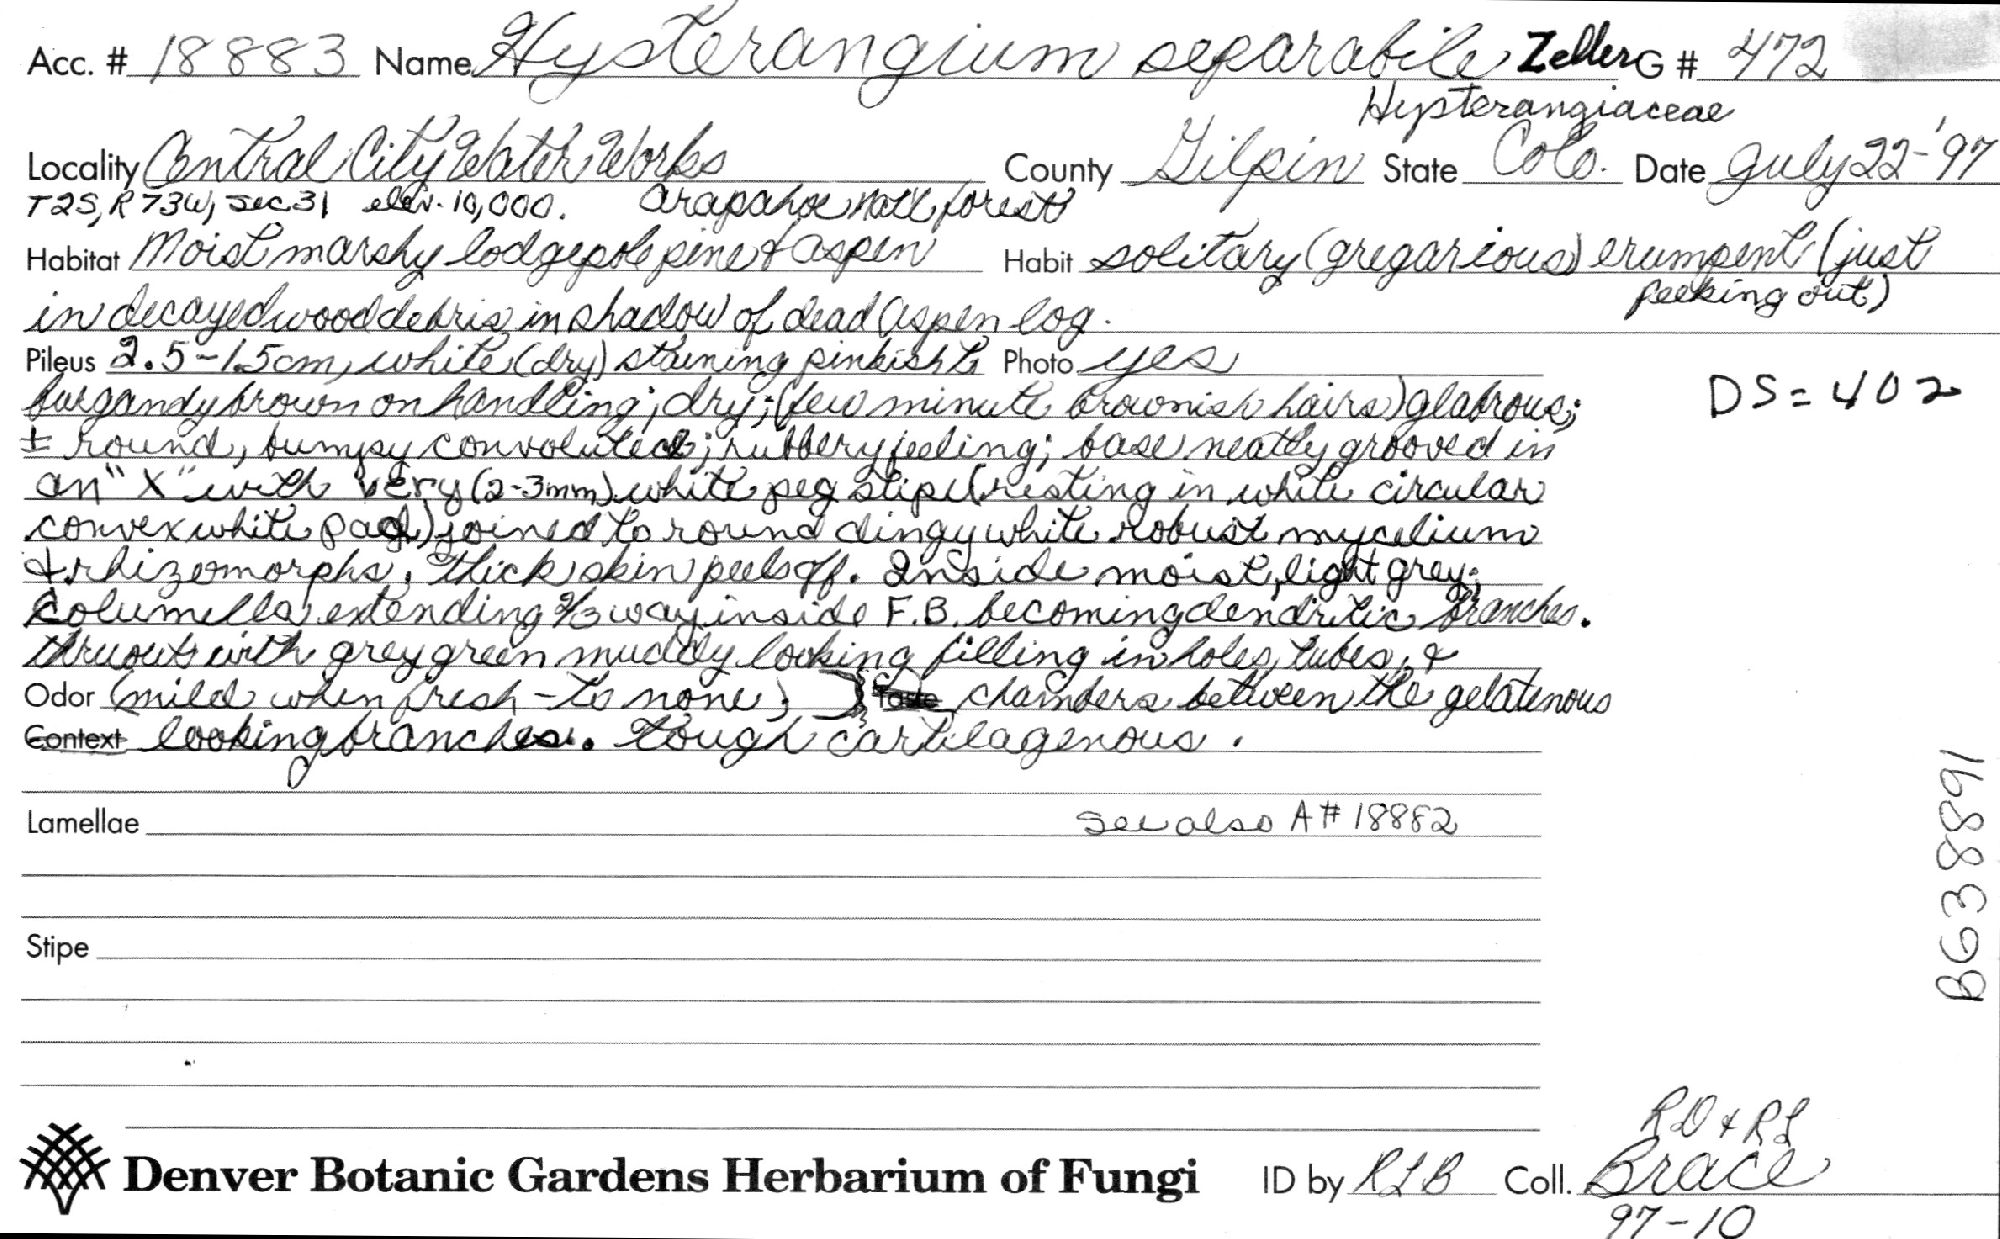 Acc. # 18883 Name Hysterangium separabile Zeller G # 472
Hysterangiaceae
Locality Central City Water Works County Gilpin State Colo. Date July 22-'97
T2S, R73W, sec.31 elev. 10,000. Arapahoe Natl forest
Habitat Moist marshy lodgepole pine & aspen Habit solitary (gregarious) erumpent (just
peeking out)
in decayed wood debris in shadow of dead aspen log.
Pileus 2.5-1.5cm, white (dry) staining pinkish to Photo yes
burgandy brown on handling; dry; (few minute brownish hairs) glabrous;
DS = 402
± round, bumpy convoluted; rubbery feeling; base neatly grooved in
an "X" with very (2-3mm) white peg stipe (resting in white circular
convex white pad) joined to round dingy white robust mycelium
& rhizomorphs, thick skin peels off. Inside moist, light grey;
Columella extending 2/3 way inside F.B. becoming dendritic branches.
thruout with grey green muddy looking filling in holes, tubes, &
Odor (mild when fresh - to none) ; Taste chambers between the gelatenous
Context looking branches. Tough cartilagenous.
Lamellae see also A# 18882
Stipe
B638891
RD & RL
Denver Botanic Gardens Herbarium of Fungi ID by RLB Coll. Brace
97-10